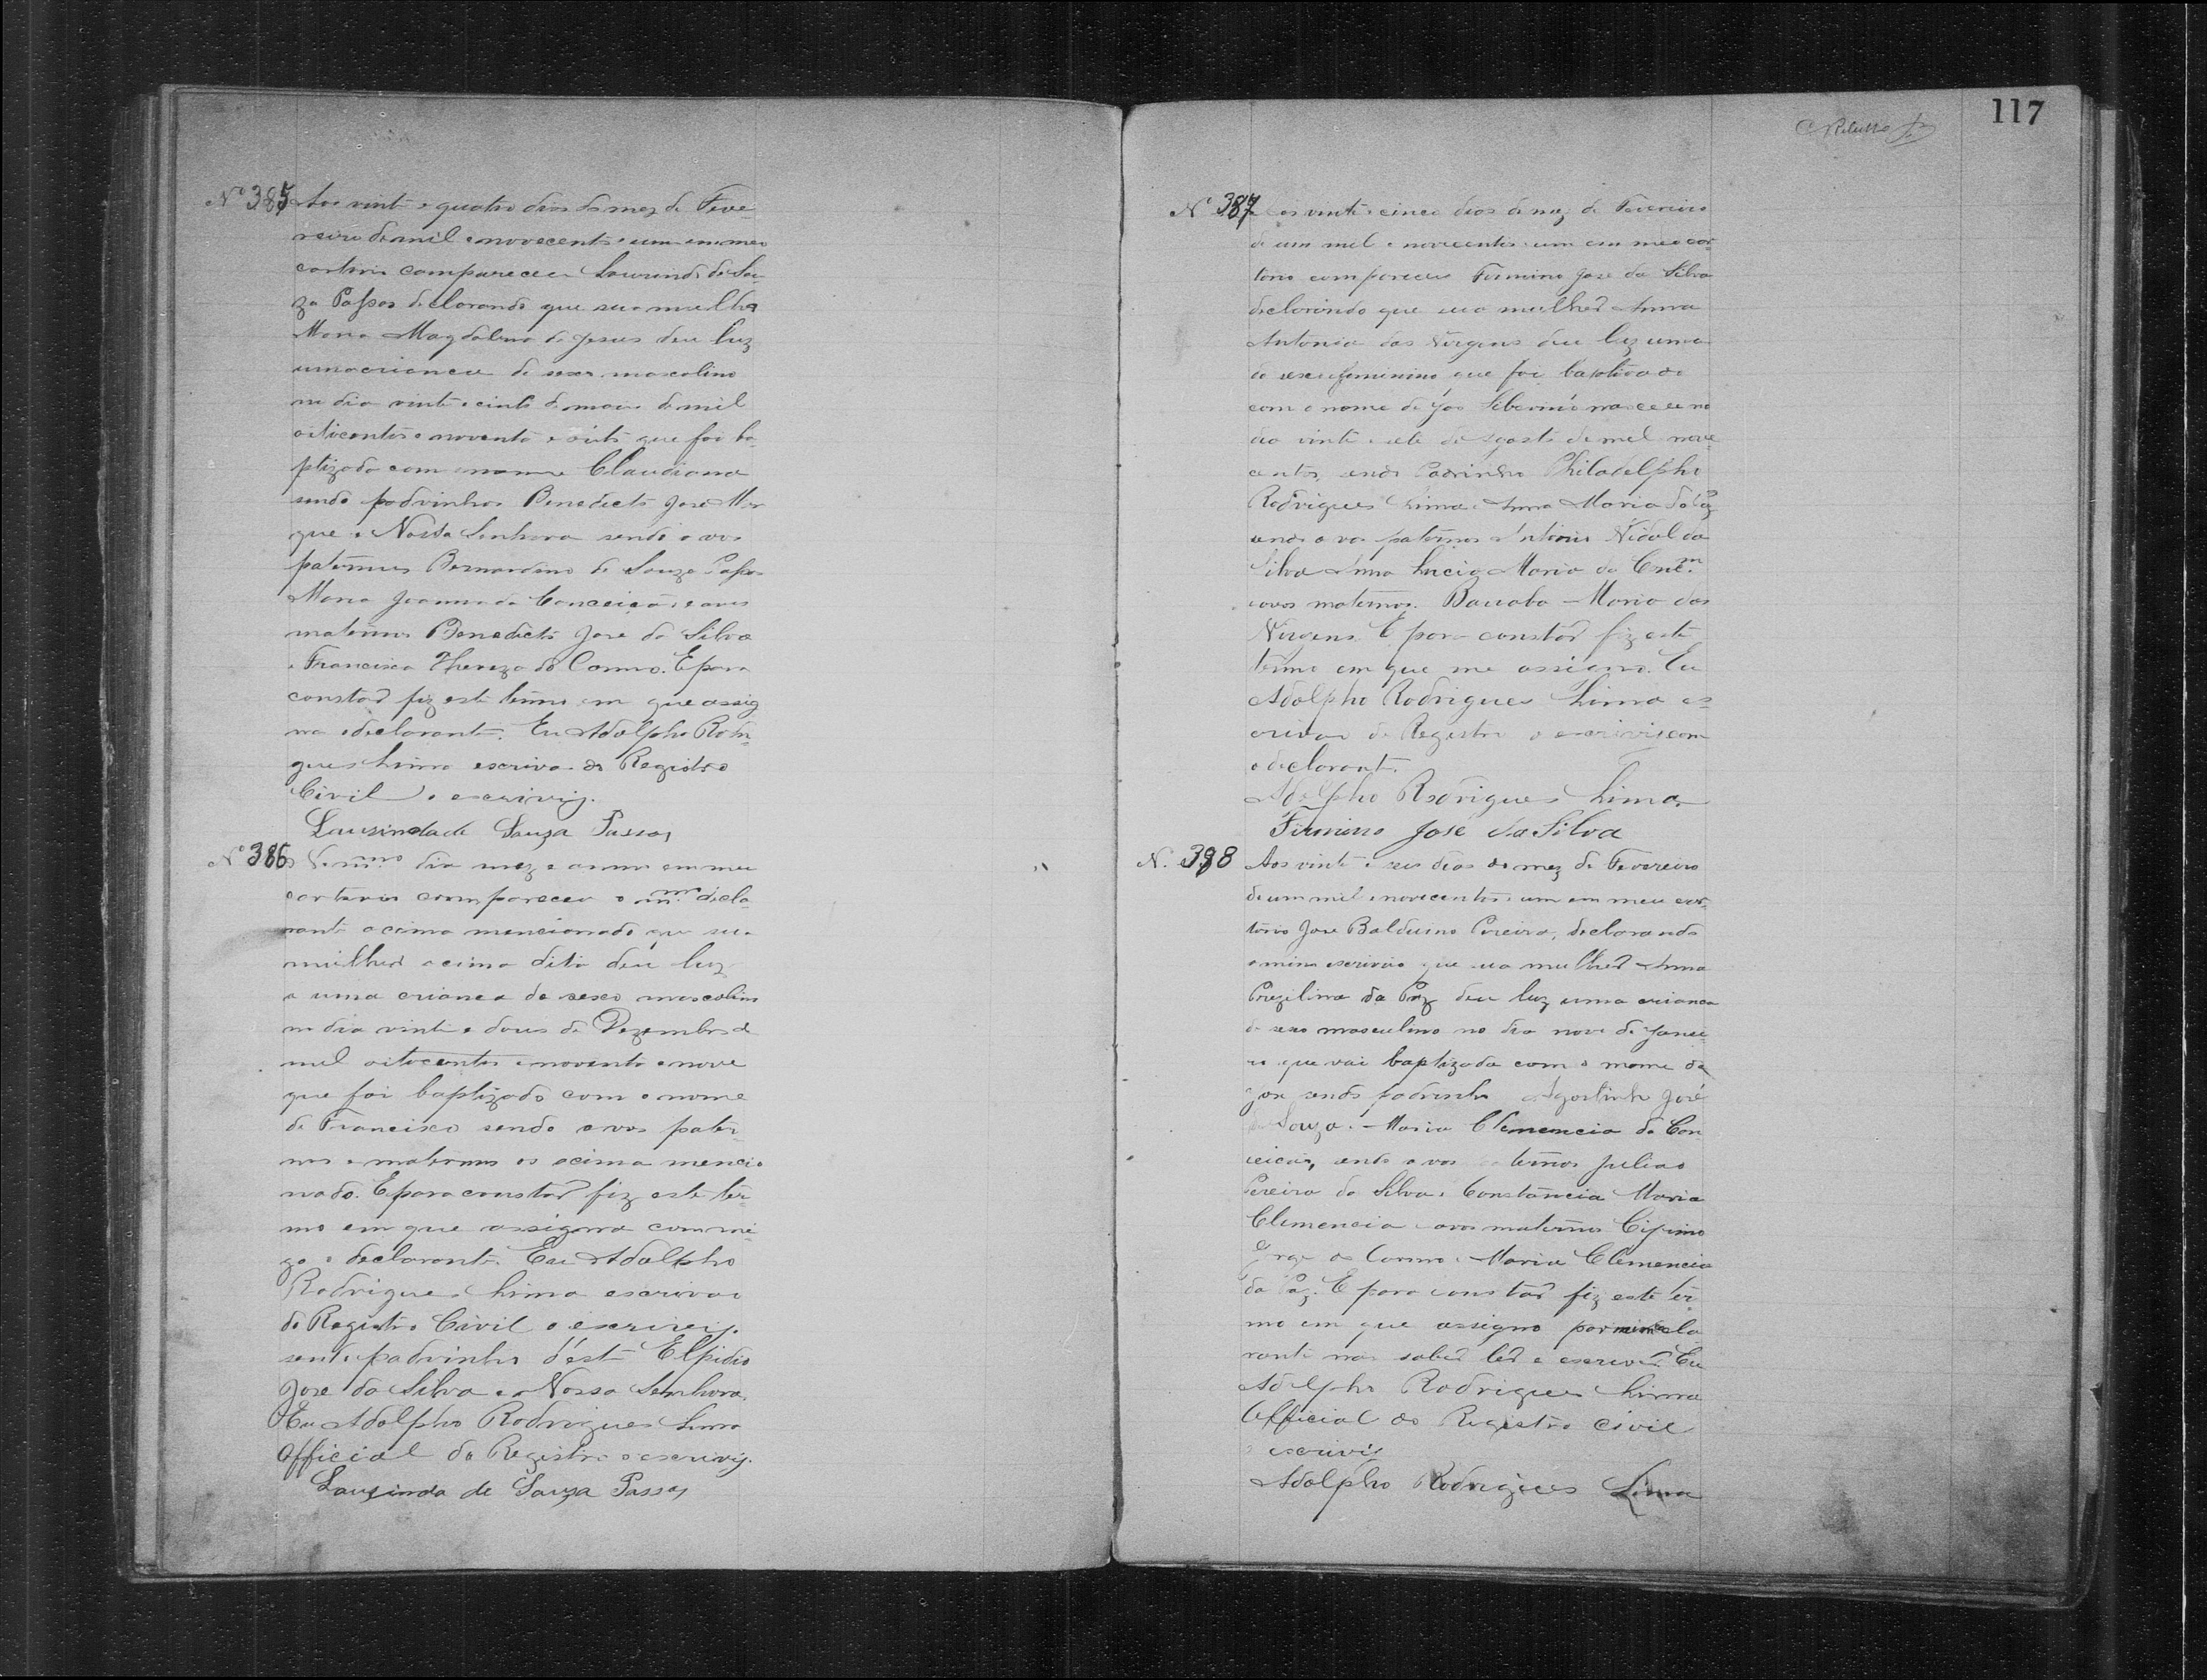 Nº 385 Aos vinte e quatro dias do mez de Feve-
reiro de mil e novecentos e um em meu
cartorio compareceu Laurindo de Sou-
za Passos declarando que sua mulher
Maria Magdalena de Jesus deu luz
uma crianca de sexo mascolino
no dia vinte e de maio de mil
oitocentos e noventa e que foi ba-
ptizado com o nome Claudiana
sendo padrinhos Benedicto José Mar
que e Nossa Senhora sendo avos
paternos Bernardino de Souza Passos
Maria Joanna da Conceição e avos
maternos Benedicto Jose da Silva
e Francisca Thereza do Carmo. E para
constar fiz este termo em que assig
na o declarante. Eu Adolpho Rodri-
gues Lima escrivao do Registro
Civil o escrivij.
Laurindo de Souza Passos
Nº 386 No mmo dia mez e anno em meu
cartorio compareceu o mmo decla-
rante acima mencionado que sua
mulher acima dita deu luz
a uma crianca do sexo mascolino
no dia vinte e dous de Dezembro de
mil oitocentos e noventa e nove
que foi baptizado com o nome
de Francisco sendo avos pater-
nos e maternos os acima mencio
nado. E para constar fiz este ter-
mo em que assigna commi-
go o declarante. Eu Adolpho
Rodrigues Lima escrivao
do Registro Civil o escrivij.
sendo padrinhos d'este Elpidio
Jose da Silva e a Nossa Senhora.
Eu Adolpho Rodrigues Lima
Official do Registro o escrivij.
Laurindo de Souza Passos
117
Nº 387 Aos vinte e cinco dias do mez de Fevereiro
de um mil e novecentos e um em meu car-
torio compareceu Firmino Jose da Silva
declarando que sua mulher Anna
Antonia das Virgens deu luz uma
do sexo feminino que foi baptizado
com o nome de nasceu no
dia vinte e sete de Agosto de mil nove
centos, sendo Padrinho Philadelpho
Rodrigues Lima e Anna Maria da Paz
sendo avos paternos Antonio Vidal da
Silva Anna Lucia Maria da Concm
e avos maternos. Maria das
Virgens. E para constar fiz este
termo em que me assigno. Eu
Adolpho Rodrigues Lima es-
crivao do Registro o escrivij com
o declarante.
Adolpho Rodrigues Lima
Firmino José da Silva
N. 398 Aos vinte e seis dias do mez de Fevereiro
de um mil e novecentos e um em meu car-
torio Jose Balduino Pereira, declarando
a mim escrivão que sua mulher Anna
da Paz deu luz uma crianca
do sexo masculino no dia nove de Janei-
ro que vai baptizada com o nome de
Jose sendo padrinho Agostinho José
de Souza e Maria Clemencia da Con
ceicão, sendo avos paternos Juliao
Pereira da Silva e Constancia Maria
Clemencia e avos maternos
Jorge do Carmo e Maria Clemencia
da Paz. E para constar fiz este ter-
mo em que assigno por
rante nao saber ler e escrever. Eu
Adolpho Rodrigues Lima
Official do Registro civil
o escrivij
Adolpho Rodrigues Lima